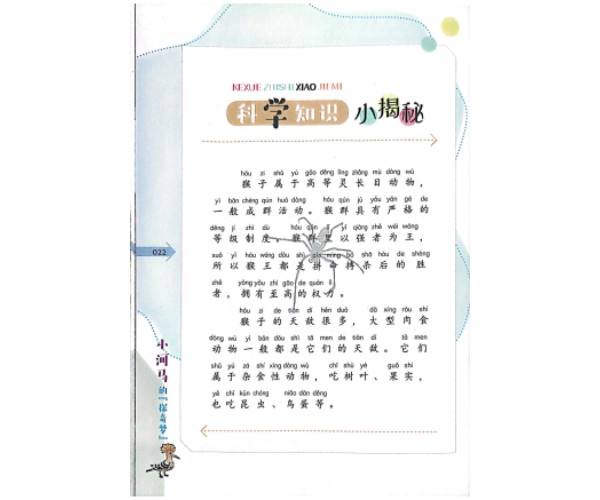 KEXUE ZHISHI XIAO JIEMI
科学知识 小揭秘
hóu zi shǔ yú gāo děng líng zhǎng mù dòng wù
猴子属于高等灵长目动物，
yì bān chéng qún huó dòng hóu qún jù yǒu yán gé de
一般成群活动。猴群具有严格的
děng jí zhì dù hóu qún lǐ yǐ qiáng zhě wéi wáng
等级制度。猴群里以强者为王，
suǒ yǐ hóu wáng dōu shì pīn mìng bó shā hòu de shèng
所以猴王都是拼命搏杀后的胜
zhě yōng yǒu zhì gāo de quán lì
者，拥有至高的权力。
hóu zi de tiān dí hěn duō dà xíng ròu shí
猴子的天敌很多，大型肉食
dòng wù yì bān dōu shì tā men de tiān dí tā men
动物一般都是它们的天敌。它们
shǔ yú zá shí xìng dòng wù chī shù yè guǒ shí
属于杂食性动物，吃树叶、果实，
yě chī kūn chóng niǎo dàn děng
也吃昆虫、鸟蛋等。
022
小河马的“探奇梦”